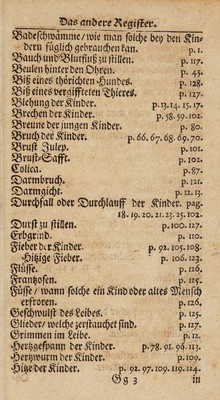 Das andere Register.
Badeschwämme/ wie man solche bey den Kin-
dern füglich gebrauchen kan. p. 1.
Bauch und Blutfluß zu stillen. p. 117.
Beulen hinter den Ohren. p. 45.
Biß eines thörichten Hundes. p. 128.
Biß eines vergiffteten Thieres. p. 127.
Blehung der Kinder. p. 13. 14. 15. 17.
Brechen der Kinder. p. 58. 59. 102.
Breune der jungen Kinder. p. 80.
Bruch der Kinder. p. 66. 67. 68. 69. 70.
Brust Julep. p. 101.
Brust-Safft. p. 102.
Colica. p. 87.
Darmbruch. p. 121.
Darmgicht. p. 12. 23.
Durchfall oder Durchlauff der Kinder. pag.
18. 19. 20. 21. 23. 25. 102.
Durst zu stillen. p. 100. 127.
Erbgrind. p. 110.
Fieber der Kinder. p. 92. 105. 108.
-Hitzige Fieber. p. 106. 123.
Flüsse. p. 126.
Frantzosen. p. 125.
Füsse / wann solche ein Kind oder altes Mensch
erfroren. p. 126.
Geschwulst des Leibes. p. 125.
Glieder/ welche zerstauchet sind. p. 127.
Grimmen im Leibe. p. 12.
Hertzgespann der Kinder. p. 78. 91. 96. 113.
Hertzwurm der Kinder. p. 109.
Hitze der Kinder. p. 92. 97. 109. 119. 124.
Gg 3 in